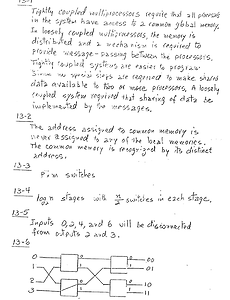 13-1
Tightly coupled multiprocessors require that all processes
in the system have access to a common global memory.
In loosely coupled multiprocessors, the memory is
distributed and a mechanism is required to
provide message-passing between the processors.
Tightly coupled systems are easier to program
since no special steps are required to make shared
data available to two or more processors. A loosely
coupled system required that sharing of data be
implemented by the messages.
13-2
The address assigned to common memory is
never assigned to any of the local memories.
The common memory is recognized by its distinct
address.
13-3
P×M switches
13-4
log₂n stages with n/2 switches in each stage.
13-5
Inputs 0, 2, 4, and 6 will be disconnected
from outputs 2 and 3.
13-6
0 0 00
1 1 01
2 0 10
3 1 11